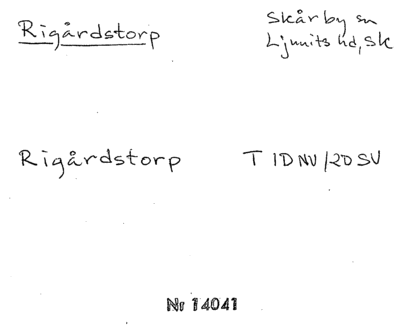 Rigårdstorp
Skårby sn
Ljunits hd, Sk
Rigårdstorp
T 1D NV/20 SV
Nr 14041